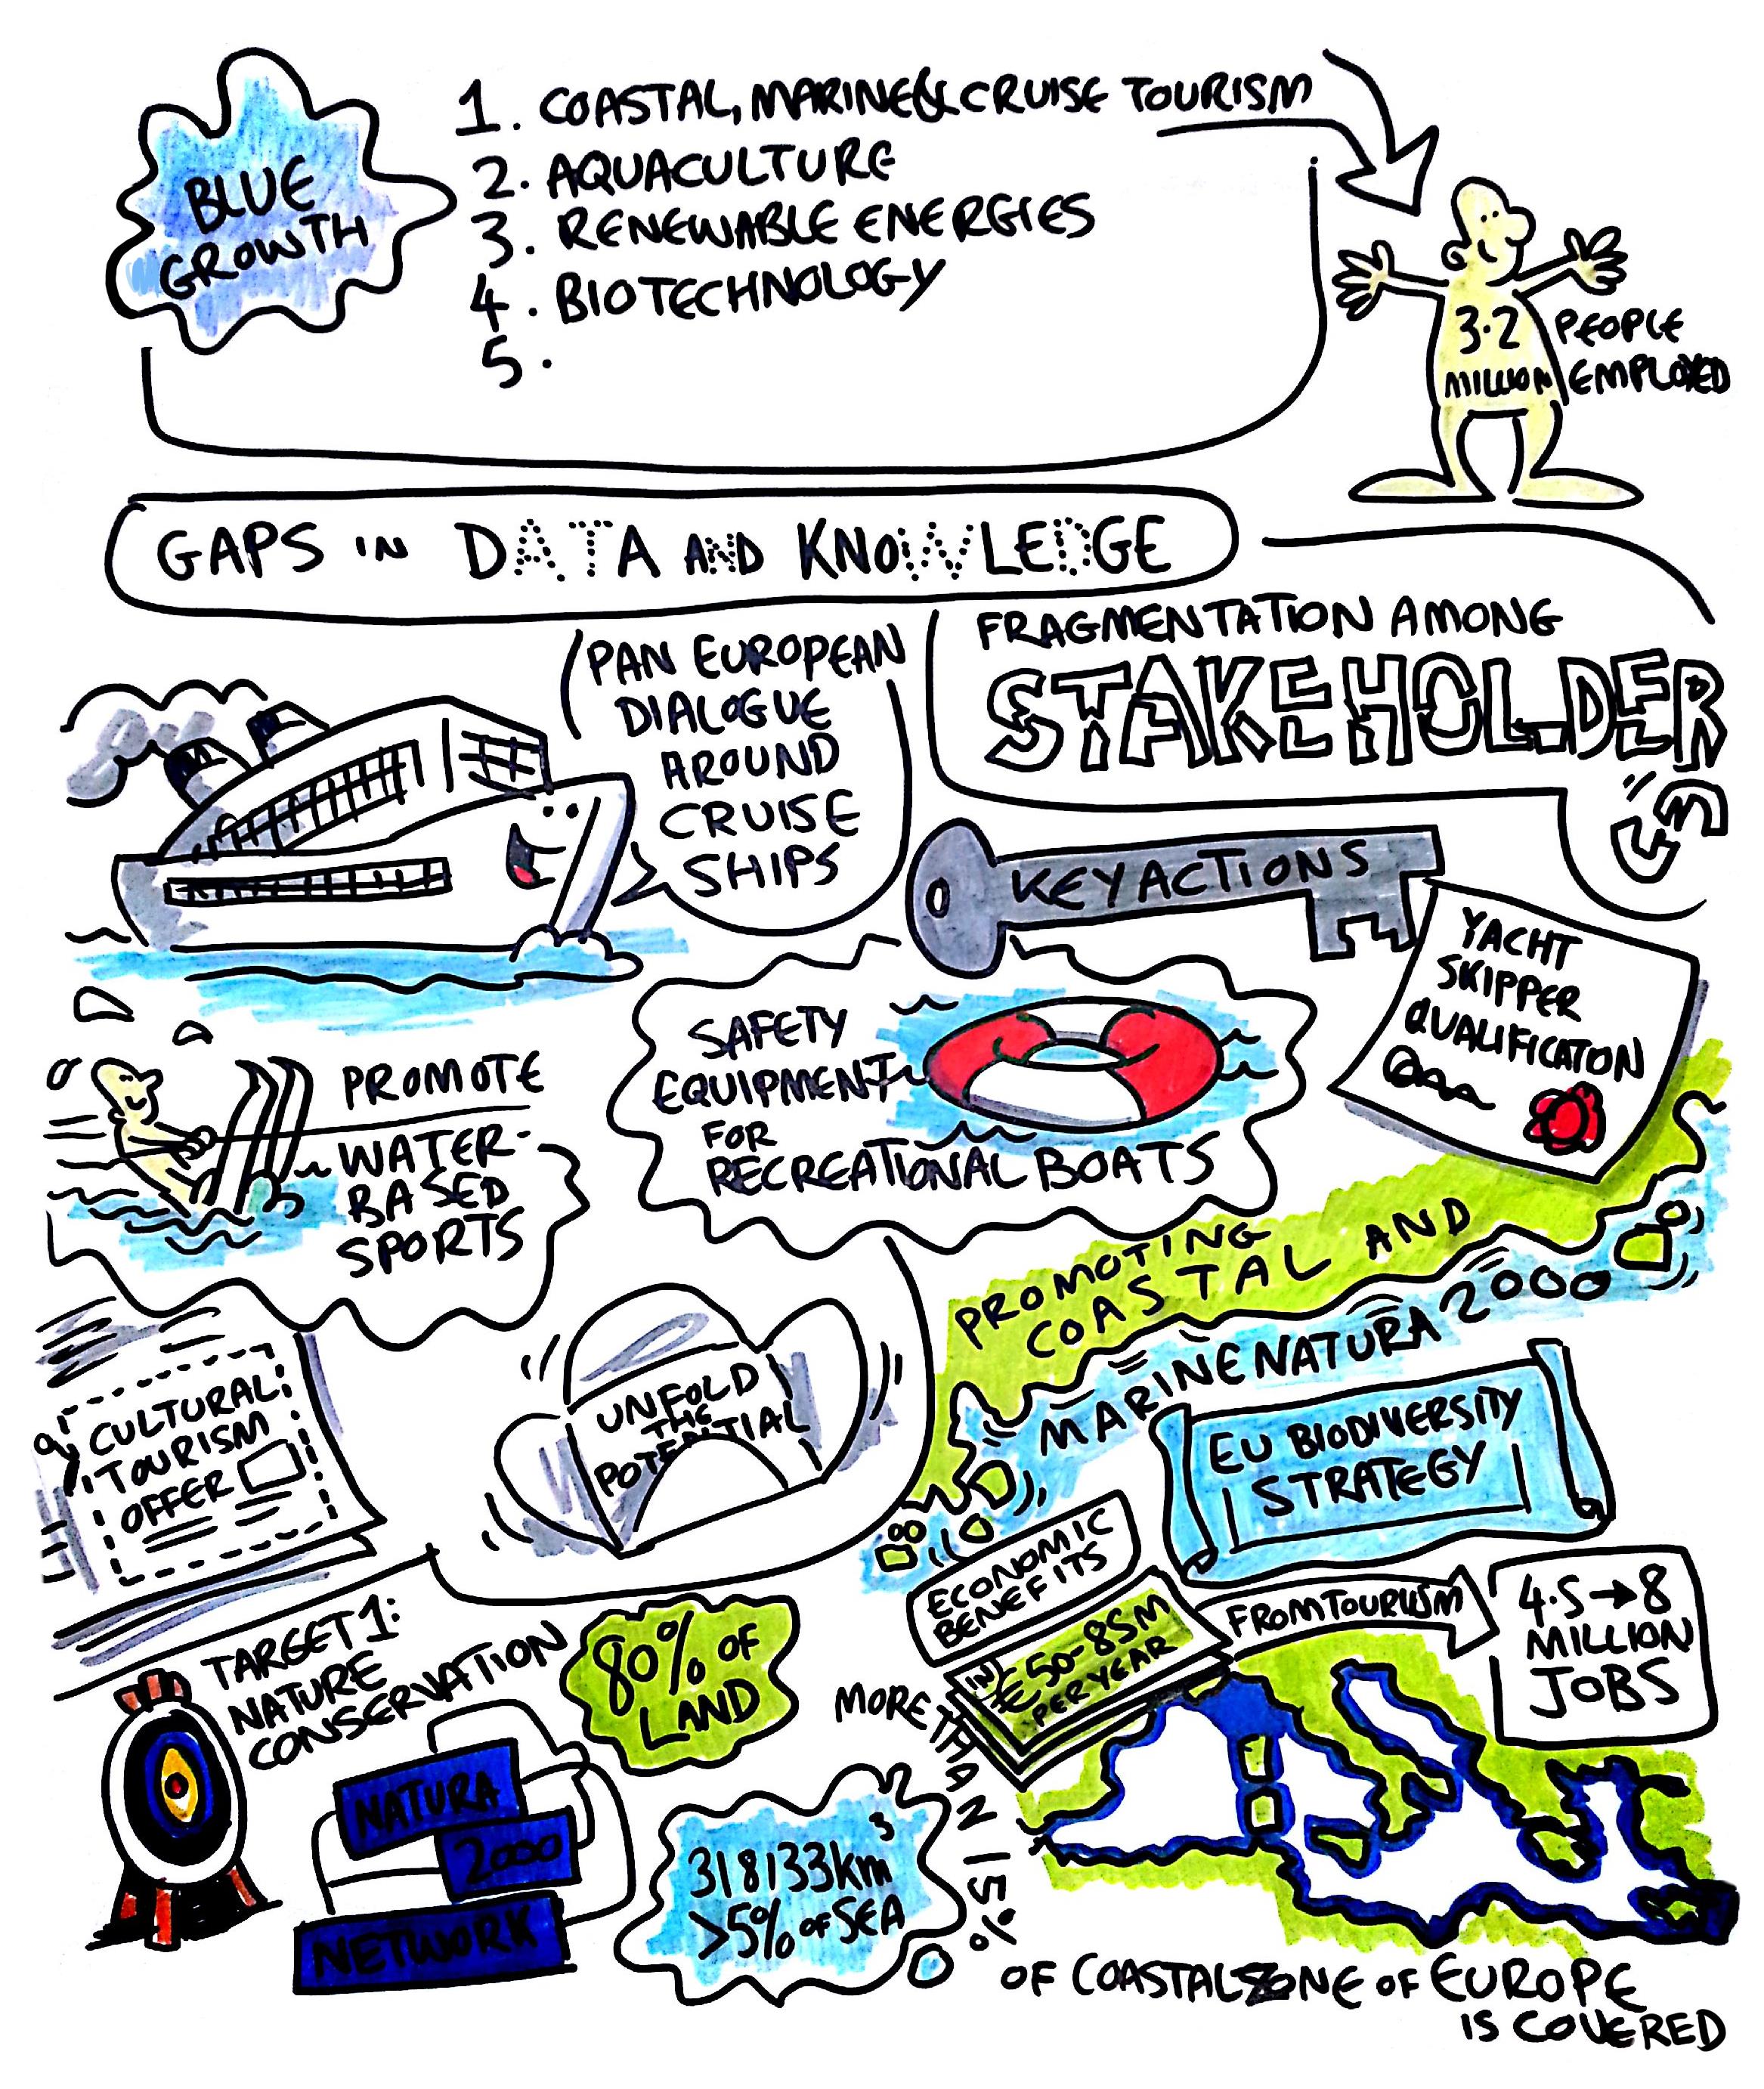 BLUE
GROWTH
1. COASTAL, MARINE & CRUISE TOURISM
2. AQUACULTURE
3. RENEWABLE ENERGIES
4. BIOTECHNOLOGY
5.
3.2
MILLION
PEOPLE
EMPLOYED
GAPS IN DATA AND KNOWLEDGE
FRAGMENTATION AMONG
STAKEHOLDERS
PAN EUROPEAN
DIALOGUE
AROUND
CRUISE
SHIPS
KEY ACTIONS
YACHT
SKIPPER
QUALIFICATON
SAFETY
EQUIPMENT
FOR
RECREATIONAL BOATS
PROMOTE
WATER-
BASED
SPORTS
PROMOTING
COASTAL AND
MARINE NATURA 2000
CULTURAL
TOURISM
OFFER
UNFOLD
THE
POTENTIAL
EU BIODIVERSITY
STRATEGY
ECONOMIC
BENEFITS
IN
€50-85M
PER YEAR
FROM TOURISM
4.5→8
MILLION
JOBS
TARGET 1:
NATURE
CONSERVATION
80% OF
LAND
NATURA
2000
NETWORK
318133km³
>5% OF SEA
MORE THAN 15%
OF COASTAL ZONE OF EUROPE
IS COVERED